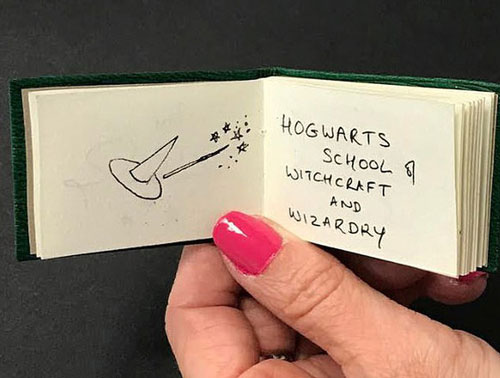 HOGWARTS
SCHOOL of
WITCHCRAFT
AND
WIZARDRY